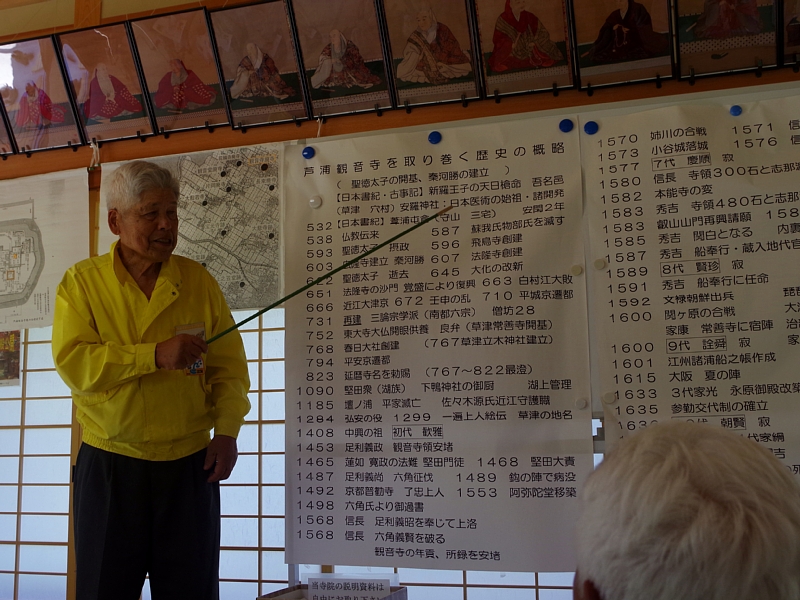 芦浦観音寺を取り巻く歴史の概略
（ 聖徳太子の開基、秦河勝の建立 ）
【日本書紀・古事記】新羅王子の天日槍命 吾名邑
（草津 穴村）安羅神社：日本医術の始祖・諸開発
【日本書紀】葦浦屯倉（守山 三宅） 安閑2年
532
538 仏教伝来 587 蘇我氏物部氏を滅す
593 聖徳太子 摂政 596 飛鳥寺創建
603 広隆寺建立 秦河勝 607 法隆寺創建
622 聖徳太子 逝去 645 大化の改新
651 法隆寺の沙門 覚盛により復興 663 白村江大敗
666 近江大津京 672 壬申の乱 710 平城京遷都
731 再建 三論宗学派（南都六宗） 僧坊28
752 東大寺大仏開眼供養 良弁（草津常善寺開基）
768 春日大社創建 （767草津立木神社建立）
794 平安京遷都
823 延暦寺名を勅賜 （767〜822最澄）
1090 堅田衆（湖族） 下鴨神社の御厨 湖上管理
1185 壇ノ浦 平家滅亡 佐々木源氏近江守護職
1284 弘安の役 1299 一遍上人絵伝 草津の地名
1408 中興の祖 初代 歓雅
1453 足利義政 観音寺領安堵
1465 蓮如 寛政の法難 堅田門徒 1468 堅田大責
1487 足利義尚 六角征伐 1489 鈎の陣で病没
1492 京都普勧寺 了忠上人 1553 阿弥陀堂移築
1498 六角氏より御過書
1568 信長 足利義昭を奉じて上洛
1568 信長 六角義賢を破る
観音寺の年貢、所録を安堵
1570 姉川の合戦 1571 信
1573 小谷城落城 1576 信
1577 7代 慶順 寂
1580 信長 寺領300石と志那
1582 本能寺の変
1583 秀吉 寺領480石と志那
1583 叡山山門再興請願 158
1585 秀吉 関白となる 内裏
1587 秀吉 船奉行・蔵入地代官
1589 8代 賢珍 寂
1591 秀吉 船奉行に任命
1592 文禄朝鮮出兵 琵琶
1600 関ヶ原の合戦 大津
家康 常善寺に宿陣 治
1600 9代 詮舜 寂 家
1601 江州諸浦船之帳作成
1615 大阪 夏の陣 大
1633 3代家光 永原御殿改築
1635 参勤交代制の確立
朝賢 寂
当寺院の説明資料は
自由にお取り下さい